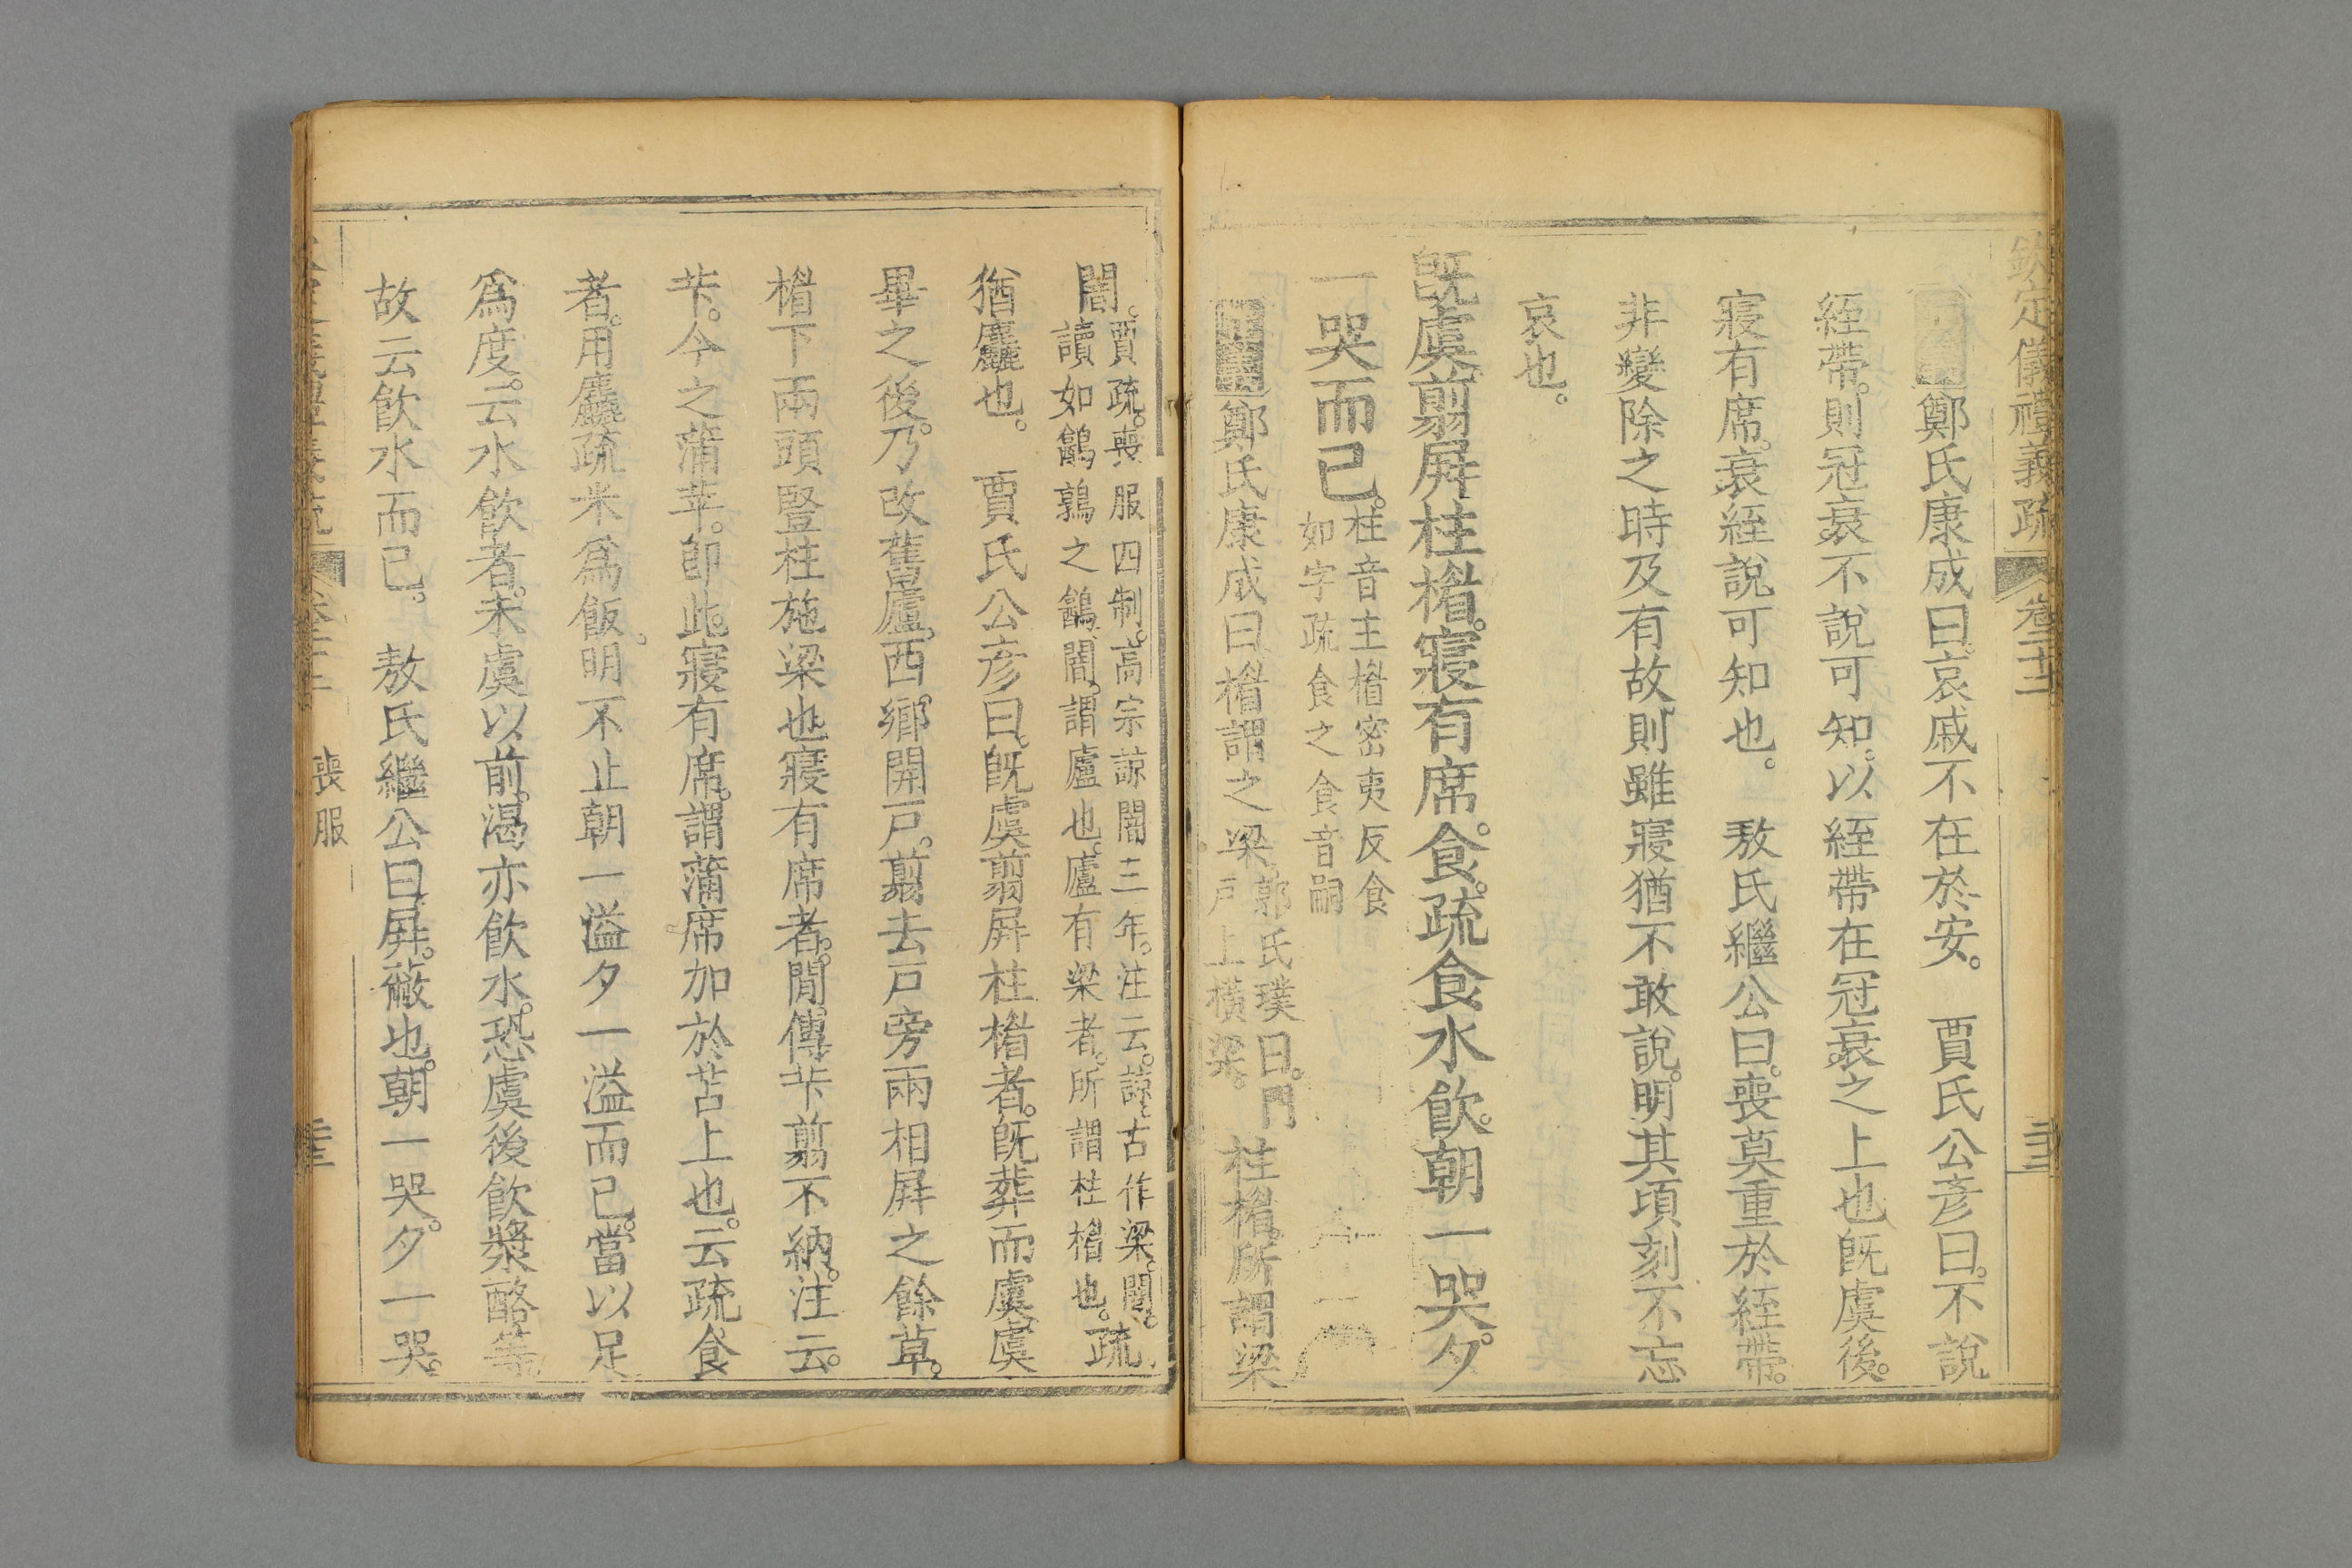 欽定儀禮義疏 卷二十二
鄭氏康成曰。哀戚不在於安。 賈氏公彦曰。不說
絰帶。則冠衰不說可知。以絰帶在冠衰之上也旣虞後。
寢有席。衰絰說可知也。 敖氏繼公曰。喪莫重於絰帶。
非變除之時及有故。則雖寢猶不敢說。明其頃刻不忘
哀也。
旣虞翦屏柱楣。寢有席。食疏食水飮。朝一哭。夕
一哭而已。
柱音主楣密夷反食
如字疏食之食音嗣
鄭氏康成曰楣謂之梁。
郭氏璞曰。門
戶上橫梁。
柱楣。所謂梁
闇。
賈疏。喪服四制。高宗諒闇三年。注云。諒古作梁。闇。
讀如鶉鷯之鷯。闇。謂廬也。廬有梁者。所謂柱楣也。
疏
猶麤也。 賈氏公彦曰。旣虞翦屏柱楣者。旣葬而虞。虞
畢之後。乃改舊廬。西鄉開戶。翦去戶旁兩相屏之餘草。
楣下兩頭豎柱施梁也寢有席者。閒傳。芐翦不納。注云。
芐。今之蒲苹。卽此。寢有席。謂蒲席加於苫上也。云疏食
者。用麤疏米爲飯。明不止朝一溢夕一溢而已。當以足
爲度。云水飮者。未虞以前。渴亦飮水。恐虞後飮漿酪等
故云飮水而已。 敖氏繼公曰。屏。蔽也。朝一哭。夕一哭。
喪服